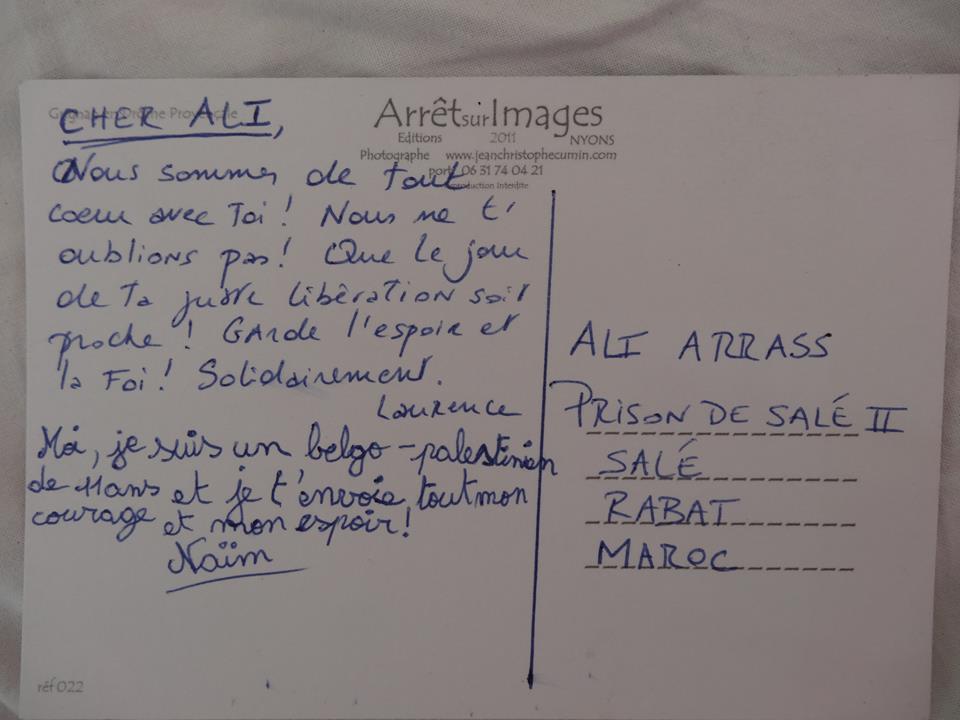 Grignan en Drôme Provençale
Arrêt sur Images
Editions 2011 NYONS
Photographe www.jeanchristophecumin.com
port 06 31 74 04 21
reproduction Interdite
CHER ALI,
Nous sommes de tout
coeur avec Toi ! Nous ne t'
oublions pas ! Que le jour
de Ta juste libération soit
proche ! GArde l'espoir et
la Foi ! Solidairement.
Laurence
Moi, je suis un belgo-palestinien
de Mons et je t'envoie tout mon
courage et mon espoir !
Naïm
ALI ARRASS
PRISON DE SALÉ II
SALÉ
RABAT
MAROC
réf 022